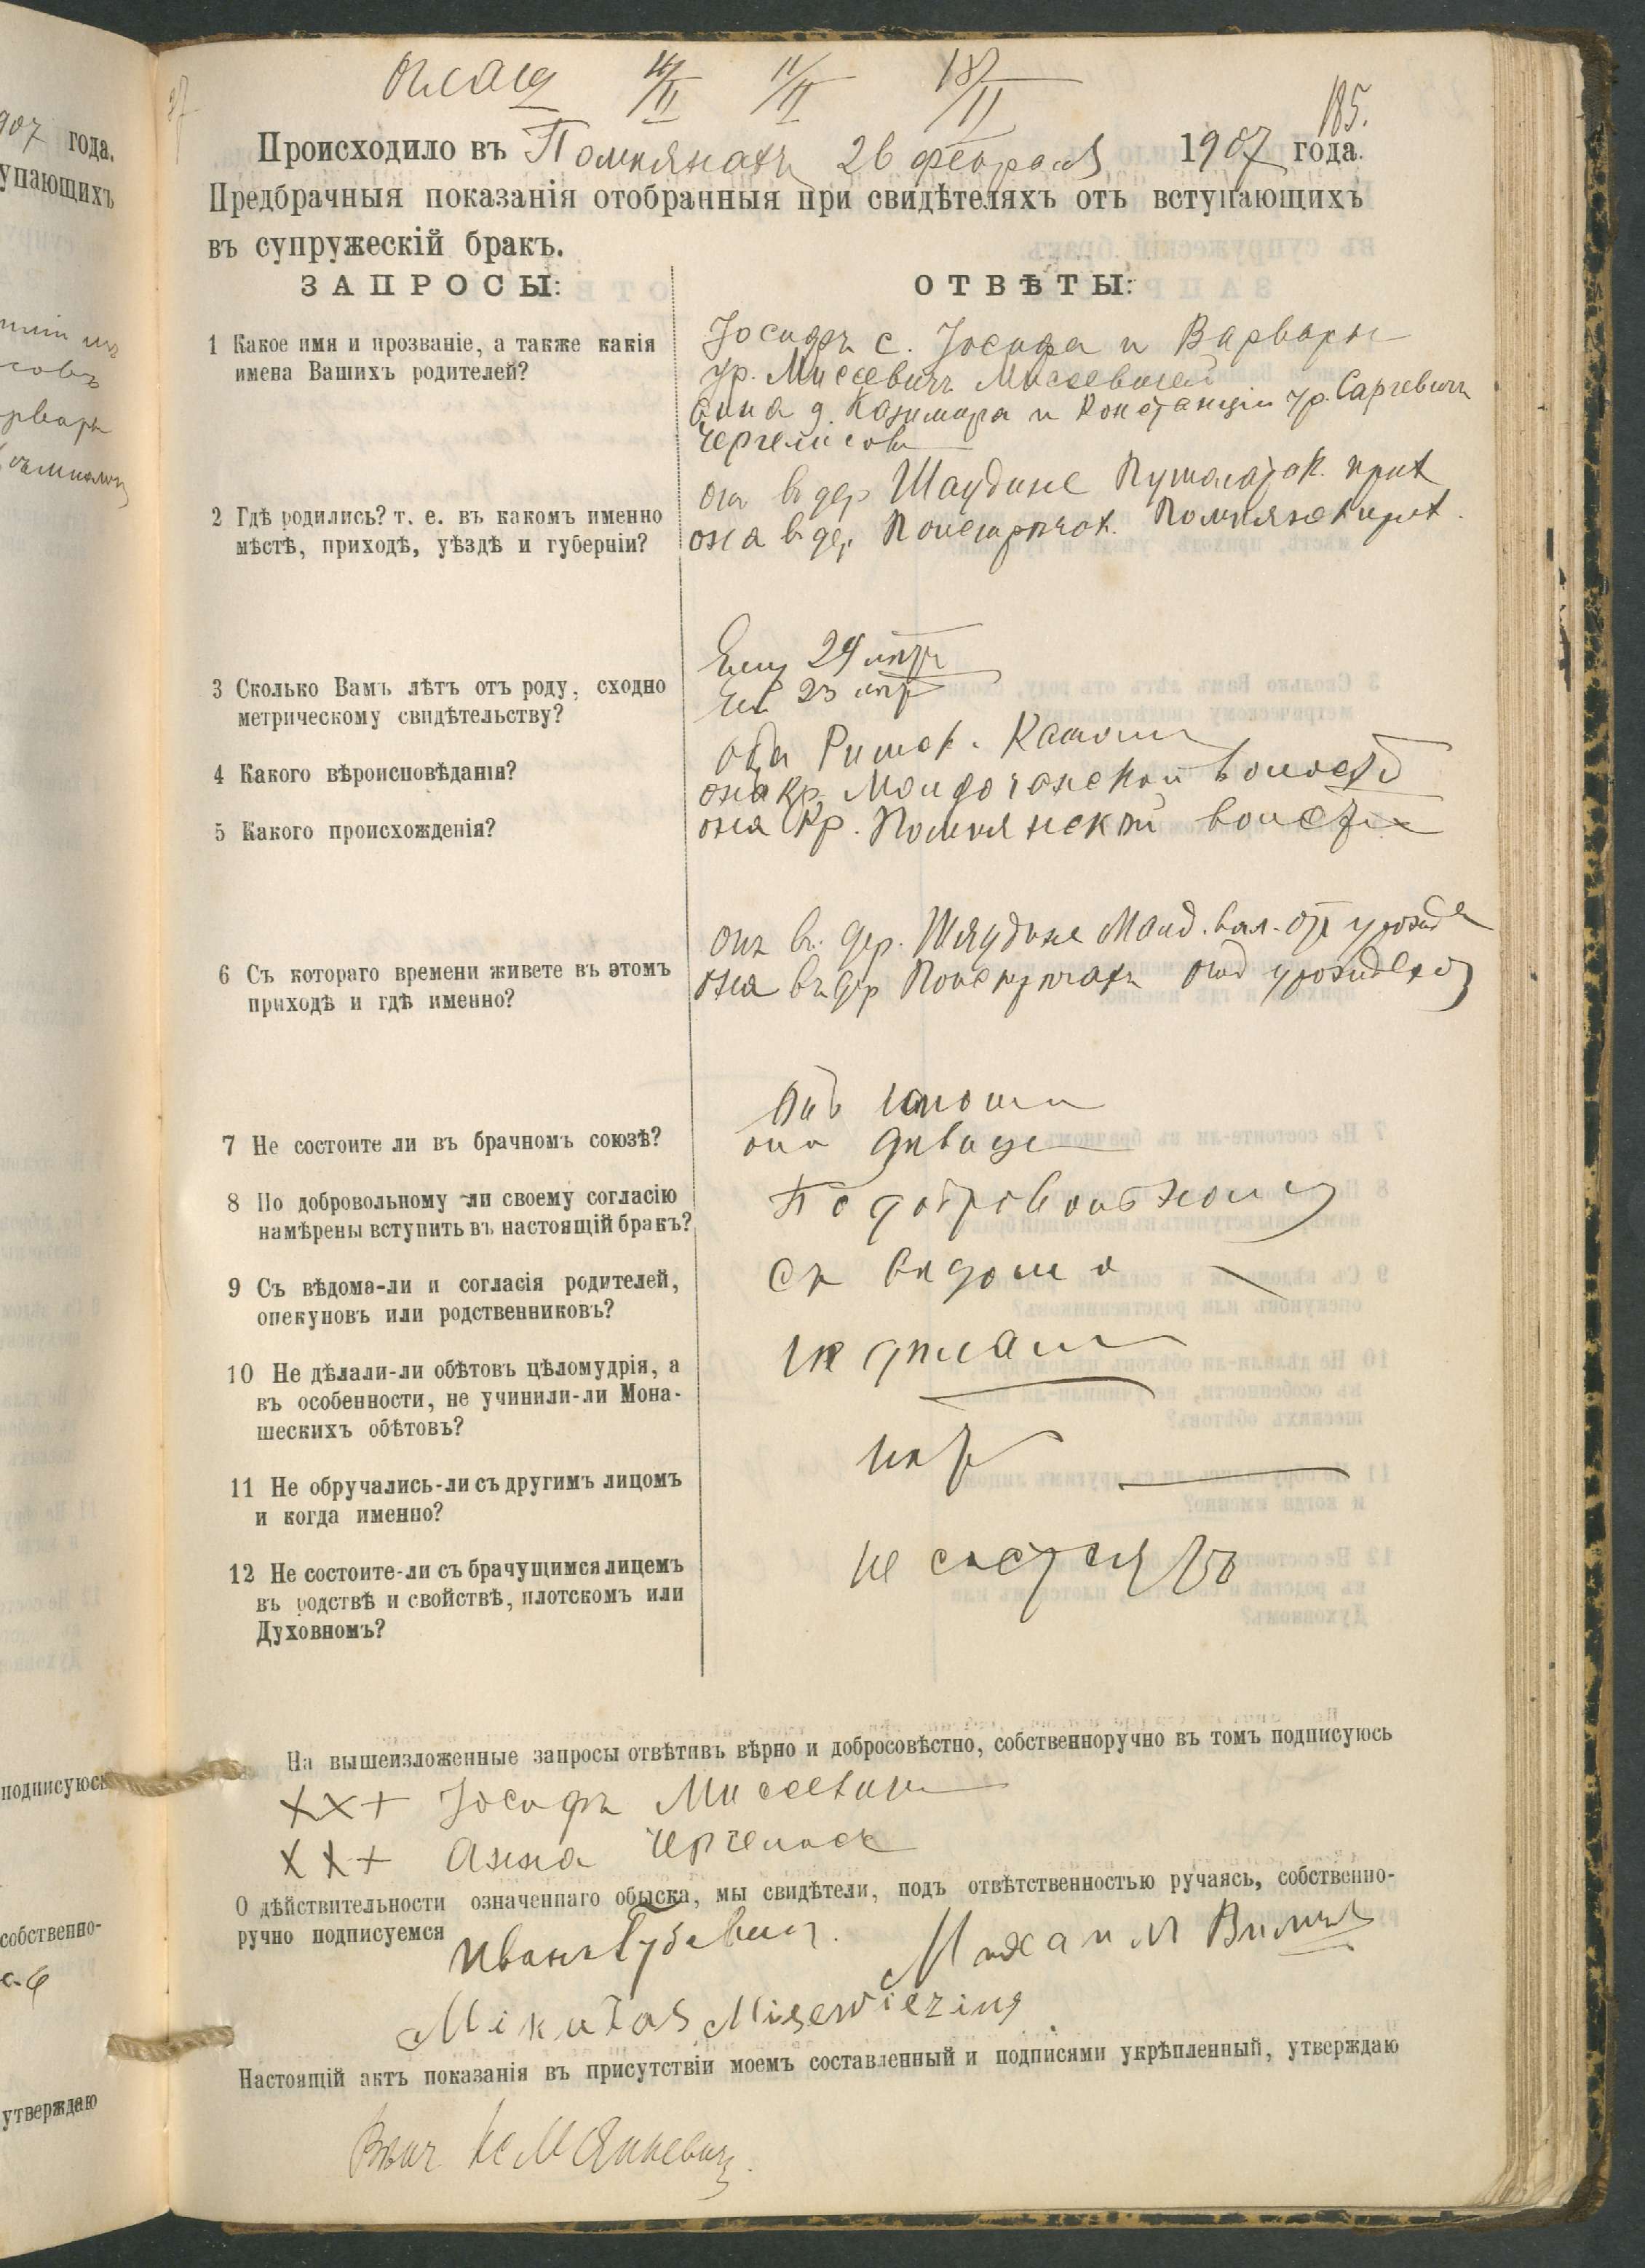 907 года.
упающихъ
подписуюсь
собственно-
утверждаю
Оглаш 4/II 11/II 18/II
185.
Происходило въ Помпянахъ 26 февраля 1907 года.
Предбрачныя показанія отобранныя при свидѣтеляхъ отъ вступающихъ
въ супружескій бракъ.
ЗАПРОСЫ: ОТВѢТЫ:
1 Какое имя и прозваніе, а также какія
имена Вашихъ родителей?
Іосифъ с. Іосифа и Варвары
ур. Мисевичъ Мисевичей
Анна д. Казимира и Констанціи ур. Саргевичъ
2 Гдѣ родились? т. е. въ какомъ именно
мѣстѣ, приходѣ, уѣздѣ и губерніи?
онъ въ дер Шаудине Пушалатск. прих
она въ дер Помпянск прих.
3 Сколько Вамъ лѣтъ отъ роду, сходно
метрическому свидѣтельству?
Ему 24 лѣтъ
Ей 23 лѣт
4 Какого вѣроисповѣданія?
Оба Римск. Катол
5 Какого происхожденія?
кр. волости
она кр. Помпянской волости
6 Съ котораго времени живете въ этомъ
приходѣ и гдѣ именно?
онъ въ дер. Шяудине вол. отъ рожд
она въ дер отъ рожденія
7 Не состоите ли въ брачномъ союзѣ?
Онъ юноша
она дѣвица
8 По добровольному ли своему согласію
намѣрены вступить въ настоящій бракъ?
По добровольному
9 Съ вѣдома-ли и согласія родителей,
опекуновъ или родственниковъ?
Съ вѣдома
10 Не дѣлали-ли обѣтовъ цѣломудрія, а
въ особенности, не учинили-ли Мона-
шескихъ обѣтовъ?
не дѣлали
11 Не обручались-ли съ другимъ лицомъ
и когда именно?
нѣтъ
12 Не состоите-ли съ брачущимся лицемъ
въ родствѣ и свойствѣ, плотскомъ или
Духовномъ?
не состоятъ
На вышеизложенные запросы отвѣтивъ вѣрно и добросовѣстно, собственноручно въ томъ подписуюсь
XX+ Іосифъ Мисевичъ
XX+ Анна
О дѣйствительности означеннаго обыска, мы свидѣтели, подъ отвѣтственностью ручаясь, собственно-
ручно подписуемся
Иванъ Губевич. Михаил
Mikułas Misewicziug
Настоящій актъ показанія въ присутствіи моемъ составленный и подписями укрѣпленный, утверждаю